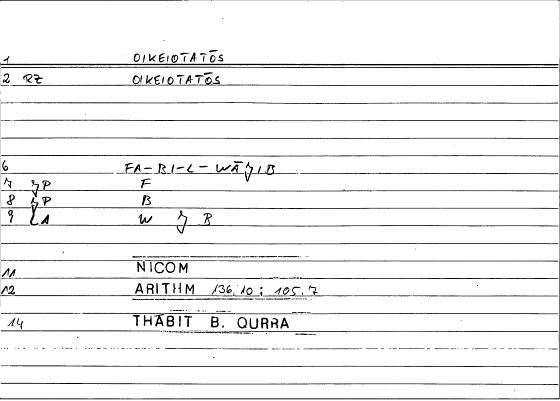 1 OIKEIOTATŌS
2 RZ OIKEIOTATŌS
6 FA-BI-L-WĀʒIB
7 ʒP F
8 ʒP B
9 LA W ʒ B
11 NICOM
12 ARITHM 136,10 : 105,7
14 THĀBIT B. QURRA